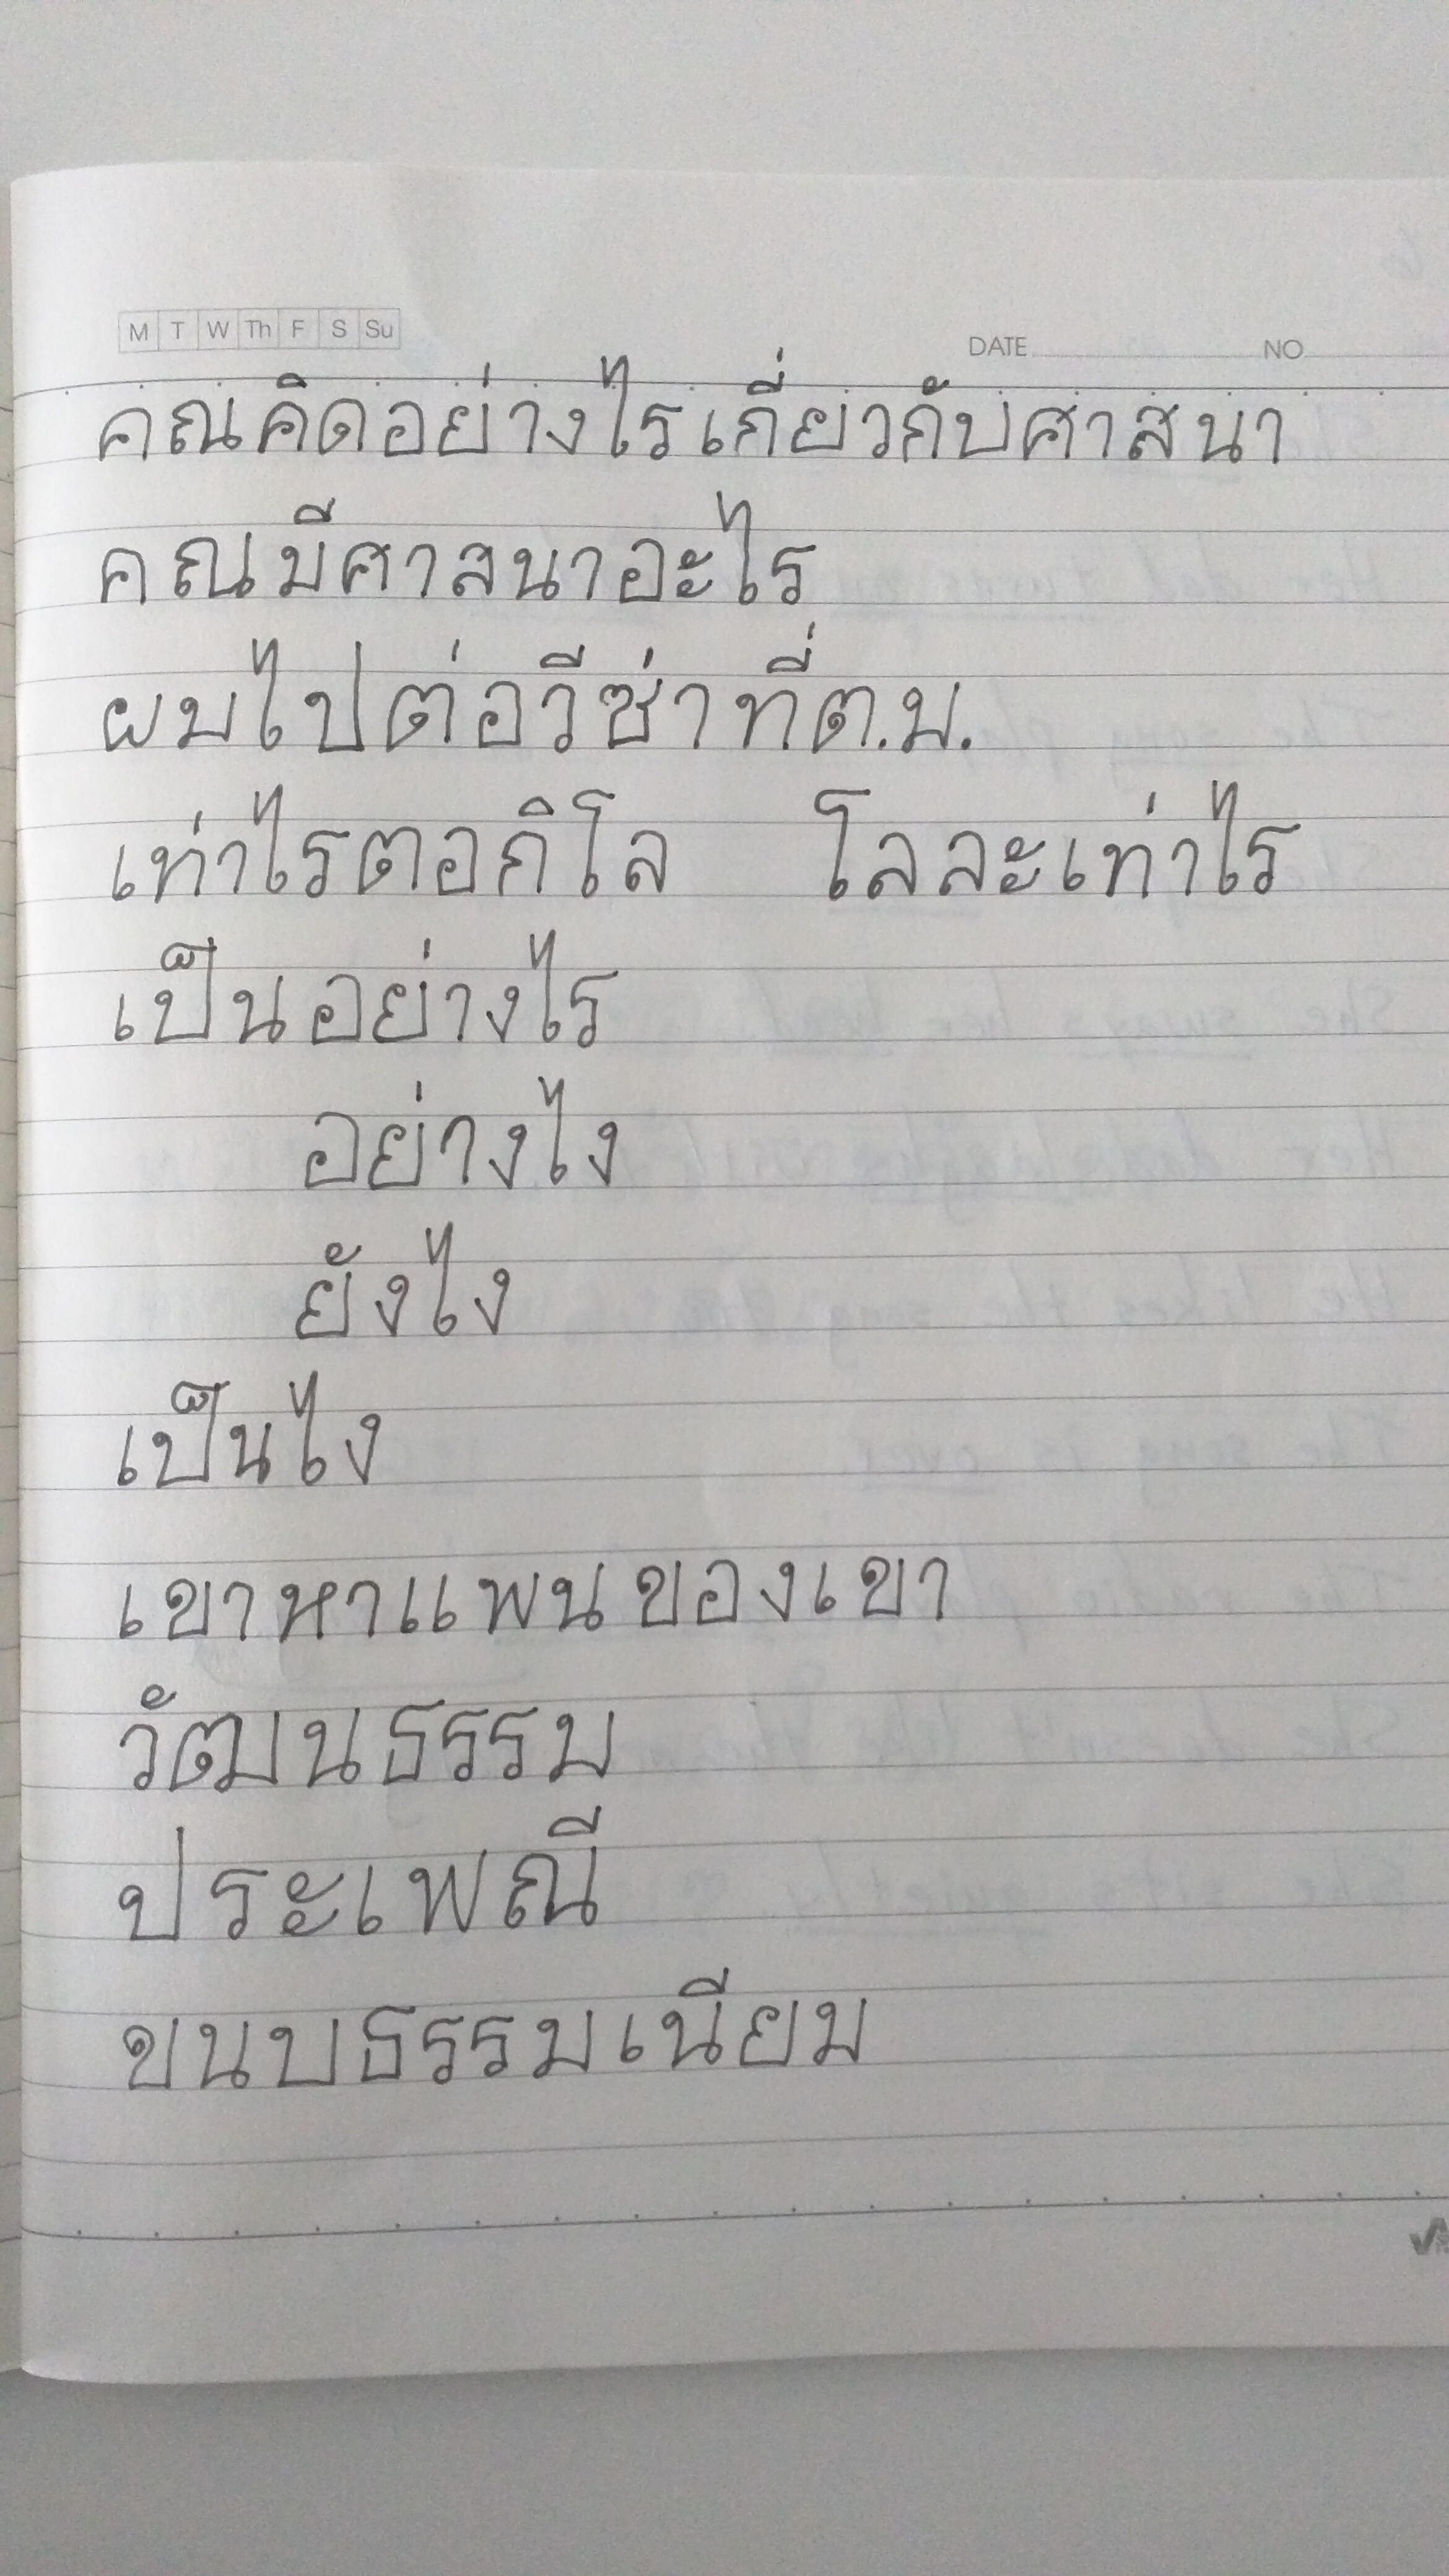 M T W Th F S Su
DATE NO
คณคิดอย่างไรเกี่ยวกับศาสนา
คณมีศาสนาอะไร
ผมไปต่อวีซ่าที่ต.ม.
เท่าไรตอกิโล โลละเท่าไร
เป็นอย่างไร
อย่างไง
ยังไง
เป็นไง
เขาหาแพนของเขา
วัฒนธรรม
ประเพณี
ขนบธรรมเนียม